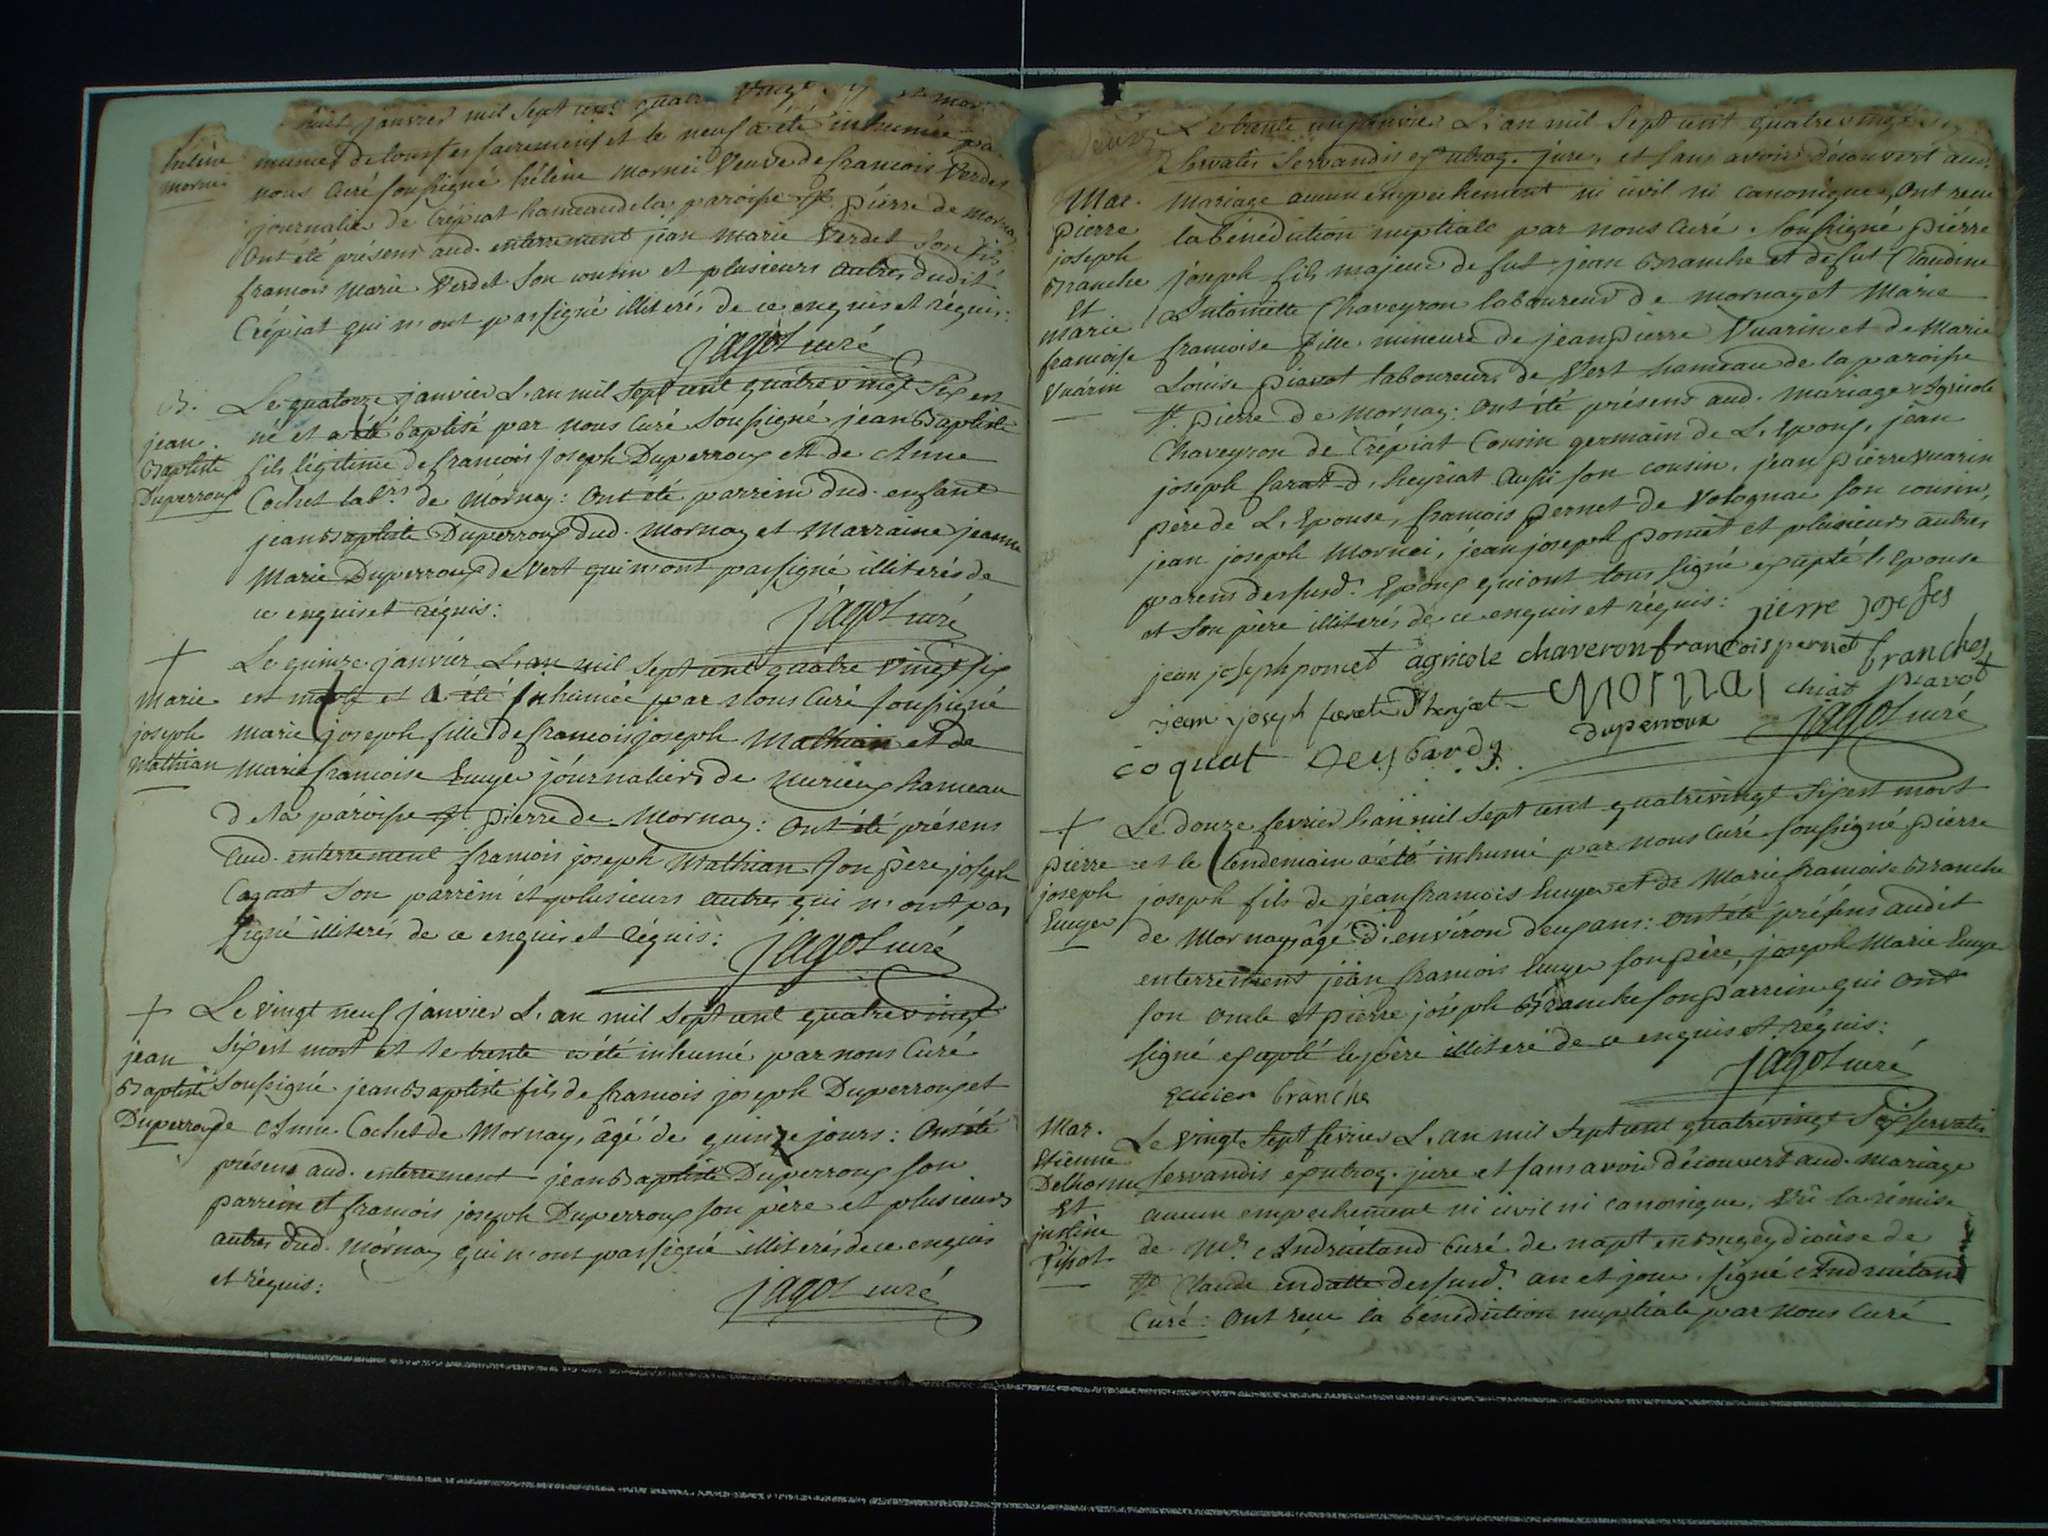 huit janvier mil sept cent quatre vingt
hélène
mornei
munie de tous ses sacremens et le neuf a été inhumée
nous curé soussigné hélène mornei veuve de francois Verdet
journalier de Crépiat hameau de la paroisse St. pierre de Mornay
Ont été présens aud. enterrement jean marie Verdet son fils
francois marie Verdet son cousin et plusieurs autres dudit
Crépiat qui n'ont pas signé illiterés de ce enquis et réquis:
jagot curé
B.
jean
Baptiste
Duperroux
Le quatorze janvier L'an mil sept cent quatre vingt Six est
né et a été baptisé par nous Curé Soussigné jean Baptiste
fils légitime de francois joseph Duperroux et de Anne
Cochet labrs de Mornay: Ont été parrein dud. enfant
jean Baptiste Duperroux dud. Mornay et Marraine jeanne
Marie Duperroux de Vert qui n'ont pas signé illiterés de
ce enquis et réquis:
jagot curé
+
Marie
joseph
Mathian
Le quinze janvier L'an mil sept cent quatre vingt six
est morte et a été inhumée par Nous Curé soussigné
Marie joseph fille de francois joseph Mathian et de
Marie francoise Emyer journaliers de Nurieux hameau
de la paroisse St. pierre de Mornay: Ont été présens
aud. enterrement francois joseph Mathian son père, joseph
Coquat son parrein et plusieurs autres qui n'ont pas
signé illiterés de ce enquis et réquis:
jagot curé
+
jean
Baptiste
Duperroux
Le vingt neuf janvier L'an mil sept cent quatre vingt
Six est mort et le trente a été inhumé par nous Curé
Soussigné jean Baptiste fils de francois joseph Duperroux et
de Anne Cochet de Mornay, âgé de quinze jours: Ont été
présens aud. enterrement jean Baptiste Duperroux son
parrein et francois joseph Duperroux son père et plusieurs
autres dud. Mornay qui n'ont pas signé illiterés de ce enquis
et réquis:
jagot curé
Le trente un janvier L'an mil sept cent quatre vingt
Servatis Servandis ex utroq. jure, et sans avoir découvert aud.
Mar.
pierre
joseph
Branche
Et
Marie
francoise
Vuarin
mariage aucun empechement ni civil ni canonique, Ont recu
la bénédiction nuptiale par nous Curé Soussigné pierre
joseph fils majeur de fut jean Branche et de fut Claudine
Antoinette Chaveyron laboureurs de Mornay et Marie
francoise fille mineure de jean pierre Vuarin et de Marie
Louise piavot laboureurs de Vert hameau de la paroisse
St. pierre de Mornay: Ont été présens aud. mariage Agricole
Chaveyron de Crépiat Cousin germain de L'Epoux, jean
joseph farat d'heyriat aussi son cousin, jean pierre Vuarin
père de L'Epouse, francois pernet de Volognat son cousin,
jean joseph Mornei, jean joseph pomet et plusieurs autres
parens desusd. Epoux qui ont tous signé excepté L'Epouse
et son père illiterés de ce enquis et réquis:
pierre josefes
branches
jean joseph pomet agricole chaveron francois pernet
jean joseph farat d'heriat Mornai chiat piavot
coquat Duperroux jagot curé
+
pierre
joseph
Emyer
Le douze fevrier L'an mil sept cent quatre vingt Six est mort
et le lendemain a été inhumé par nous Curé soussigné pierre
joseph fils de jean francois Emyer et de Marie francoise Branche
de Mornay, âgé d'environ deux ans: Ont été présens audit
enterrement jean francois Emyer son père, joseph Marie Emyer
son oncle et pierre joseph Branche son parrein qui ont
signé excepté le père illiteré de ce enquis et réquis:
jagot curé
Emier branche
Mar.
Etienne
Delhorme
Et
justine
Vissot
Le vingt Sept fevrier L'an mil sept cent quatre vingt Six servatis
servandis ex utroq. jure et sans avoir découvert aud. mariage
aucun empechement ni civil ni canonique. Vû la rémise
de Mr. Andruitand Curé de napt en Bugey diocèse de
St. Claude en datte desusd. an et jour, signé Andruitand
Curé: Ont recu la bénédiction nuptiale par Nous Curé